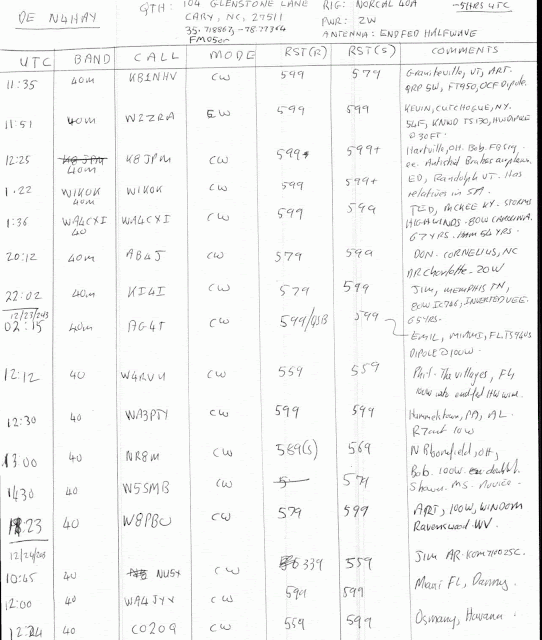 DE N4HAY QTH: 104 GLENSTONE LANE RIG: NORCAL 40A -5HRS UTC
CARY, NC, 27511 PWR: 2W
35.718867, -78.77364 ANTENNA: ENDFED HALFWAVE
FM05or
UTC BAND CALL MODE RST(R) RST(S) COMMENTS
11:35 40m KB1NHV CW 599 579 Graniteville, VT, ART.
QRP 5W, FT950, OCF Dipole.
11:51 40m W2ZRA CW 599 599 KEVIN, CUTCHOGUE, NY.
54F, KNWD TS130, HW DIPOLE
@ 30FT.
12:25 40m K8JPM CW 599+ 599+ Hartville, OH. Bob. FB sig.
ex. Antichel Brakes airplanes.
1:22 W1KOK 40m W1KOK CW 599 599+ ED, Randolph VT. Has
relatives in
1:36 WA4CXI 40 WA4CXI CW 599 599 TED, MCKEE KY. STORMS
HIGH WINDS. 80W CAROLINA.
67 YRS. HAM 54 YRS.
20:12 40m AB4J CW 579 599 DON. CORNELIUS, NC
NR Charlotte. 20W
22:02 40m KI4I CW 579 599 JIM, MEMPHIS TN,
80W IC746, INVERTED VEE.
65 YRS.
12/23/2013
02:15 40m AG4T CW 599/QSB 599 EMIL, MIAMI, FL
DIPOLE @ 100W.
12:12 40 W4RVU CW 559 559 Phil. The villages, FL
100W into endfed HW wire.
12:30 40 WA3PTY CW 599 599 Hummelstown, PA, AL.
R7 ant 10W
13:00 40 NR8M CW 589(5) 569 N Bloomfield, OH,
Bob. 100W. doublet.
1430 40 W5SMB CW 5 579 Shawn. MS.
23 40 W8PBO CW 579 599 ART, 100W, WINDOM
Ravenswood WV.
12/24/2013
10:45 40 NU5X CW 339 559 Jim AR.
12:00 40 WA4JYX CW 599 599 FL, Danny.
12:24 40 CO2OQ CW 559 599 Osmany, Havana.